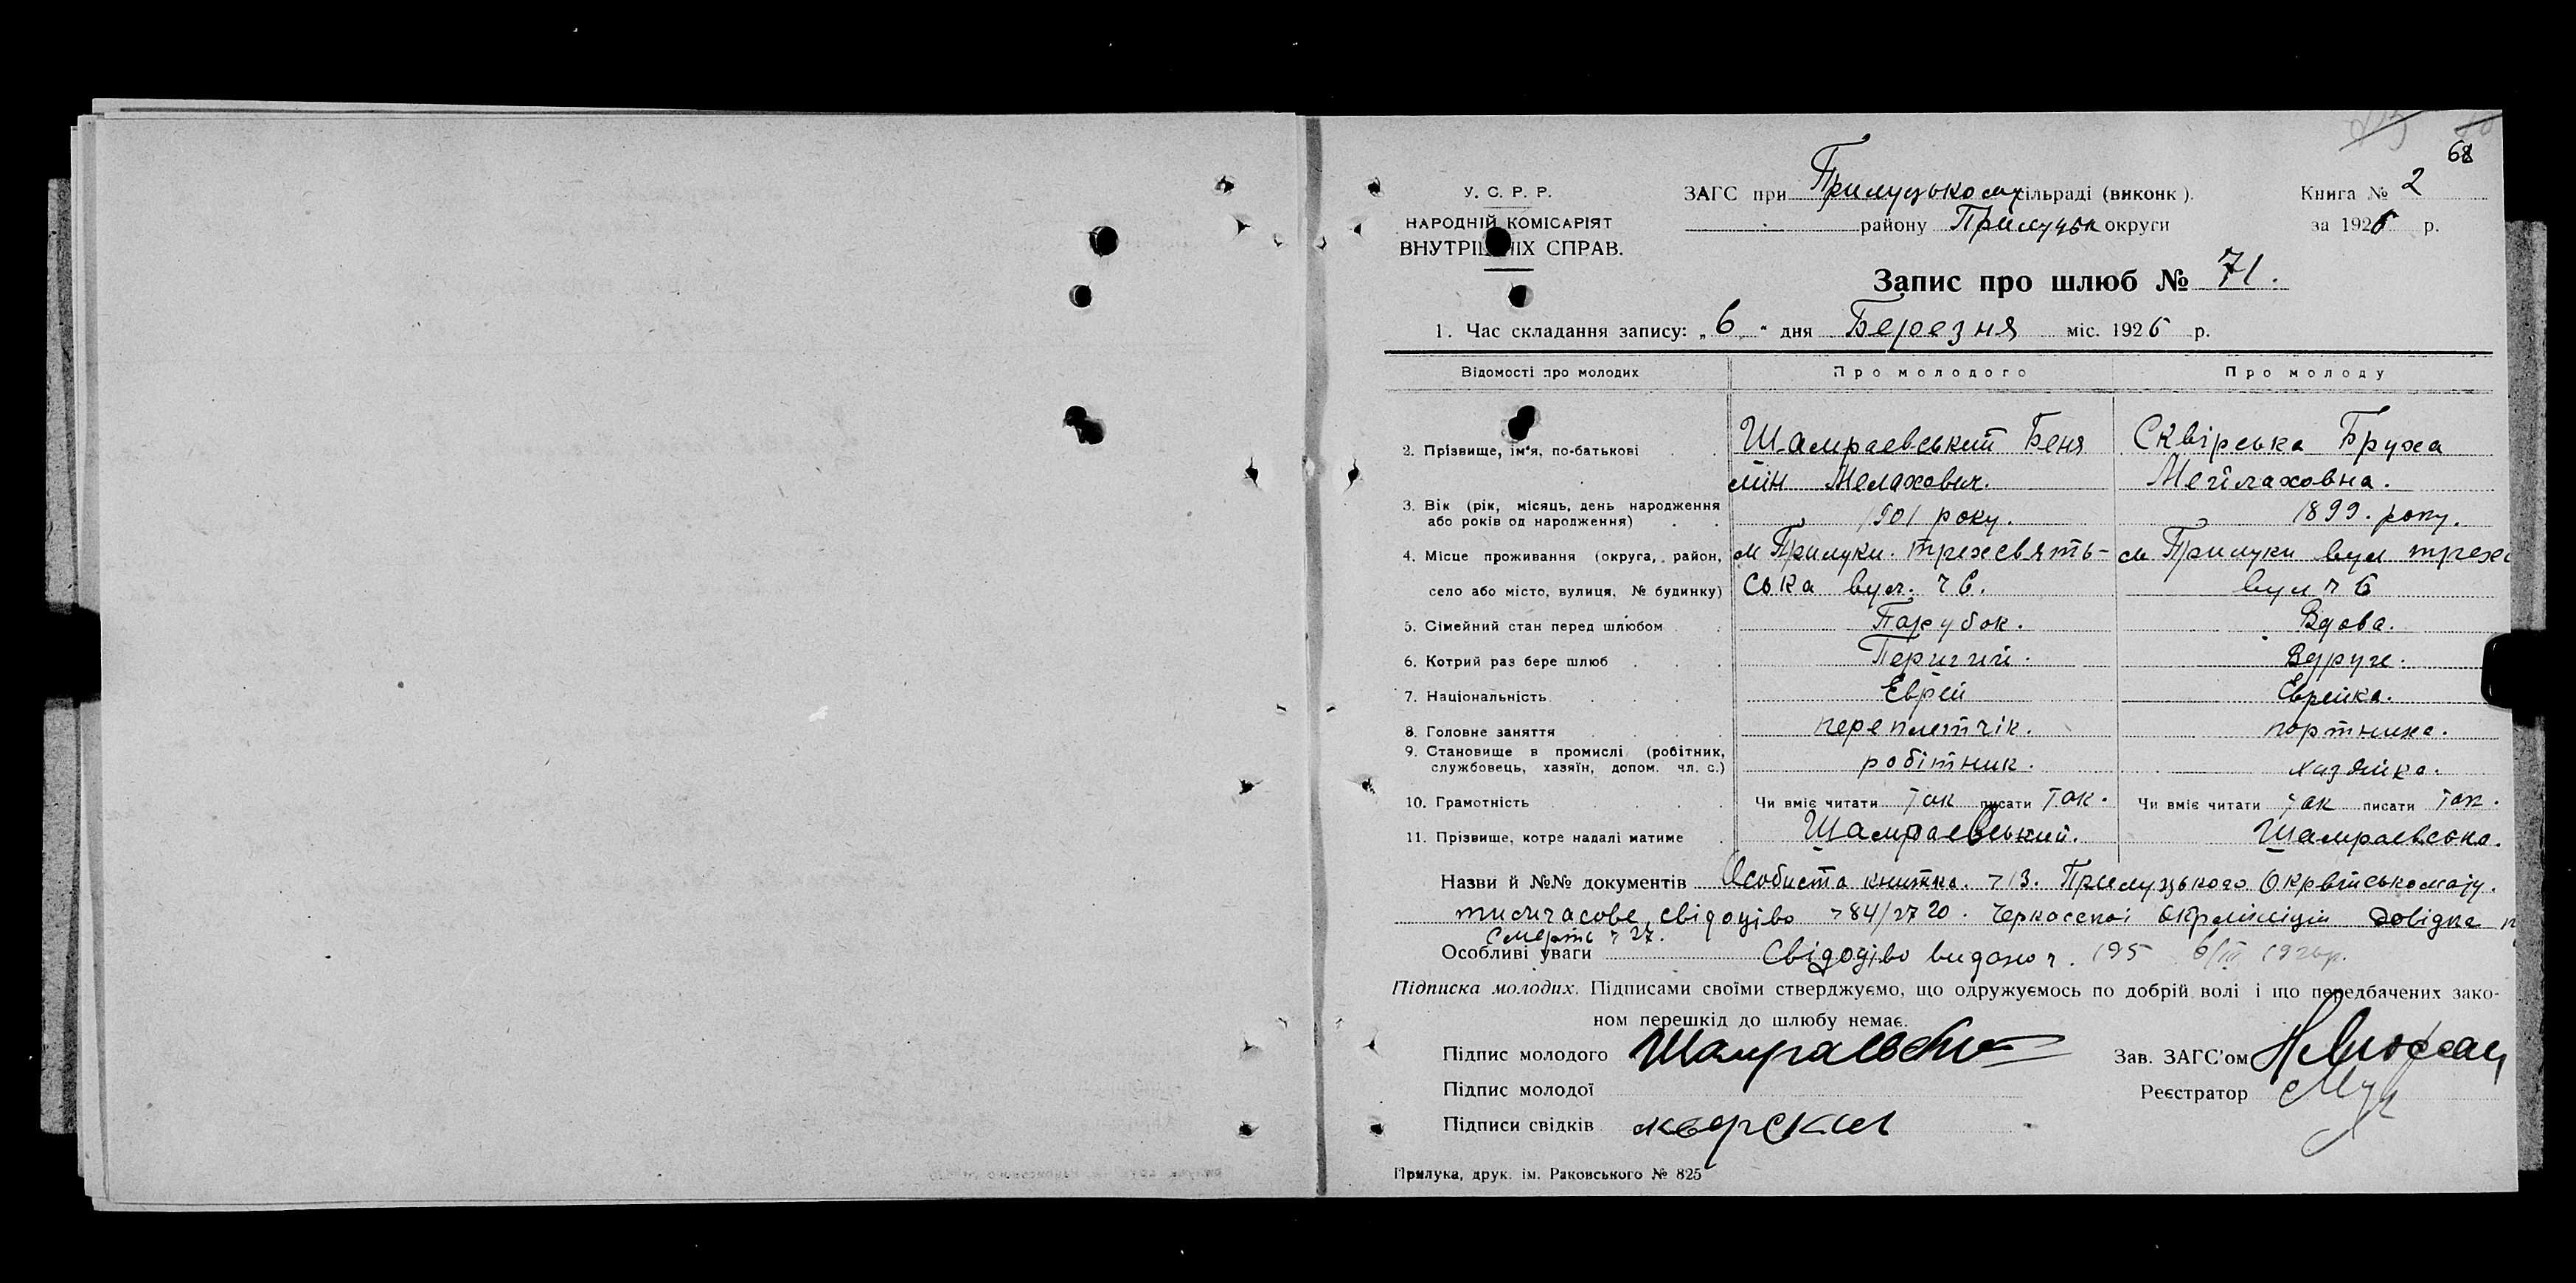 68
У. С. Р. Р.
НАРОДНІЙ КОМІСАРІЯТ
ВНУТРІШНІХ СПРАВ.
ЗАГС при Прилуцькому сільраді (виконк ).
району Прилуцьк округи
Книга № 2
за 1926 р.
Запис про шлюб № 71.
1. Час складання запису: „6" дня Березня міс. 1926 р.
Відомості про молодих
Про молодого
Про молоду
2. Прізвище, ім'я, по-батькові
Шамраевський Беня
мін Мелахович.
Сквірська Бруха
Мейлаховна.
3. Вік (рік, місяць, день народження
або років од народження)
1901 року.
1899. року.
4. Місце проживання (округа, район,
село або місто, вулиця, № будинку)
м Прилуки. трехсвять-
ська вул. ч 6.
м Прилуки вул трехс
вул ч 6
5. Сімейний стан перед шлюбом
Парубок.
Вдова.
6. Котрий раз бере шлюб
Перший.
Вдруге.
7. Національність
Еврей
Еврейка.
8. Головне заняття
переплетчік.
портниха.
9. Становище в промислі (робітник,
службовець, хазяїн, допом. чл. с.)
робітник.
хазяйка.
10. Грамотність
Чи вміє читати так писати так.
Чи вміє читати так писати так.
11. Прізвище, котре надалі матиме
Шамраевський.
Шамраевська.
Назви й №№ документів Особиста книжка. ч 13. Прилуцького Окрвійськомату.
тимчасове свідоцтво ч 84/2720. Черкаської Окрміліціи довідка
Смерть ч 27.
Особливі уваги Свідоцтво видано ч. 195 6/III 1926р.
Підписка молодих. Підписами своїми стверджуємо, що одружуємось по добрій волі і що передбачених зако-
ном перешкід до шлюбу немає.
Підпис молодого Шамраевски
Зав. ЗАГС'ом
Підпис молодої
Реєстратор
Підписи свідків
Прилука, друк. ім. Раковського № 825